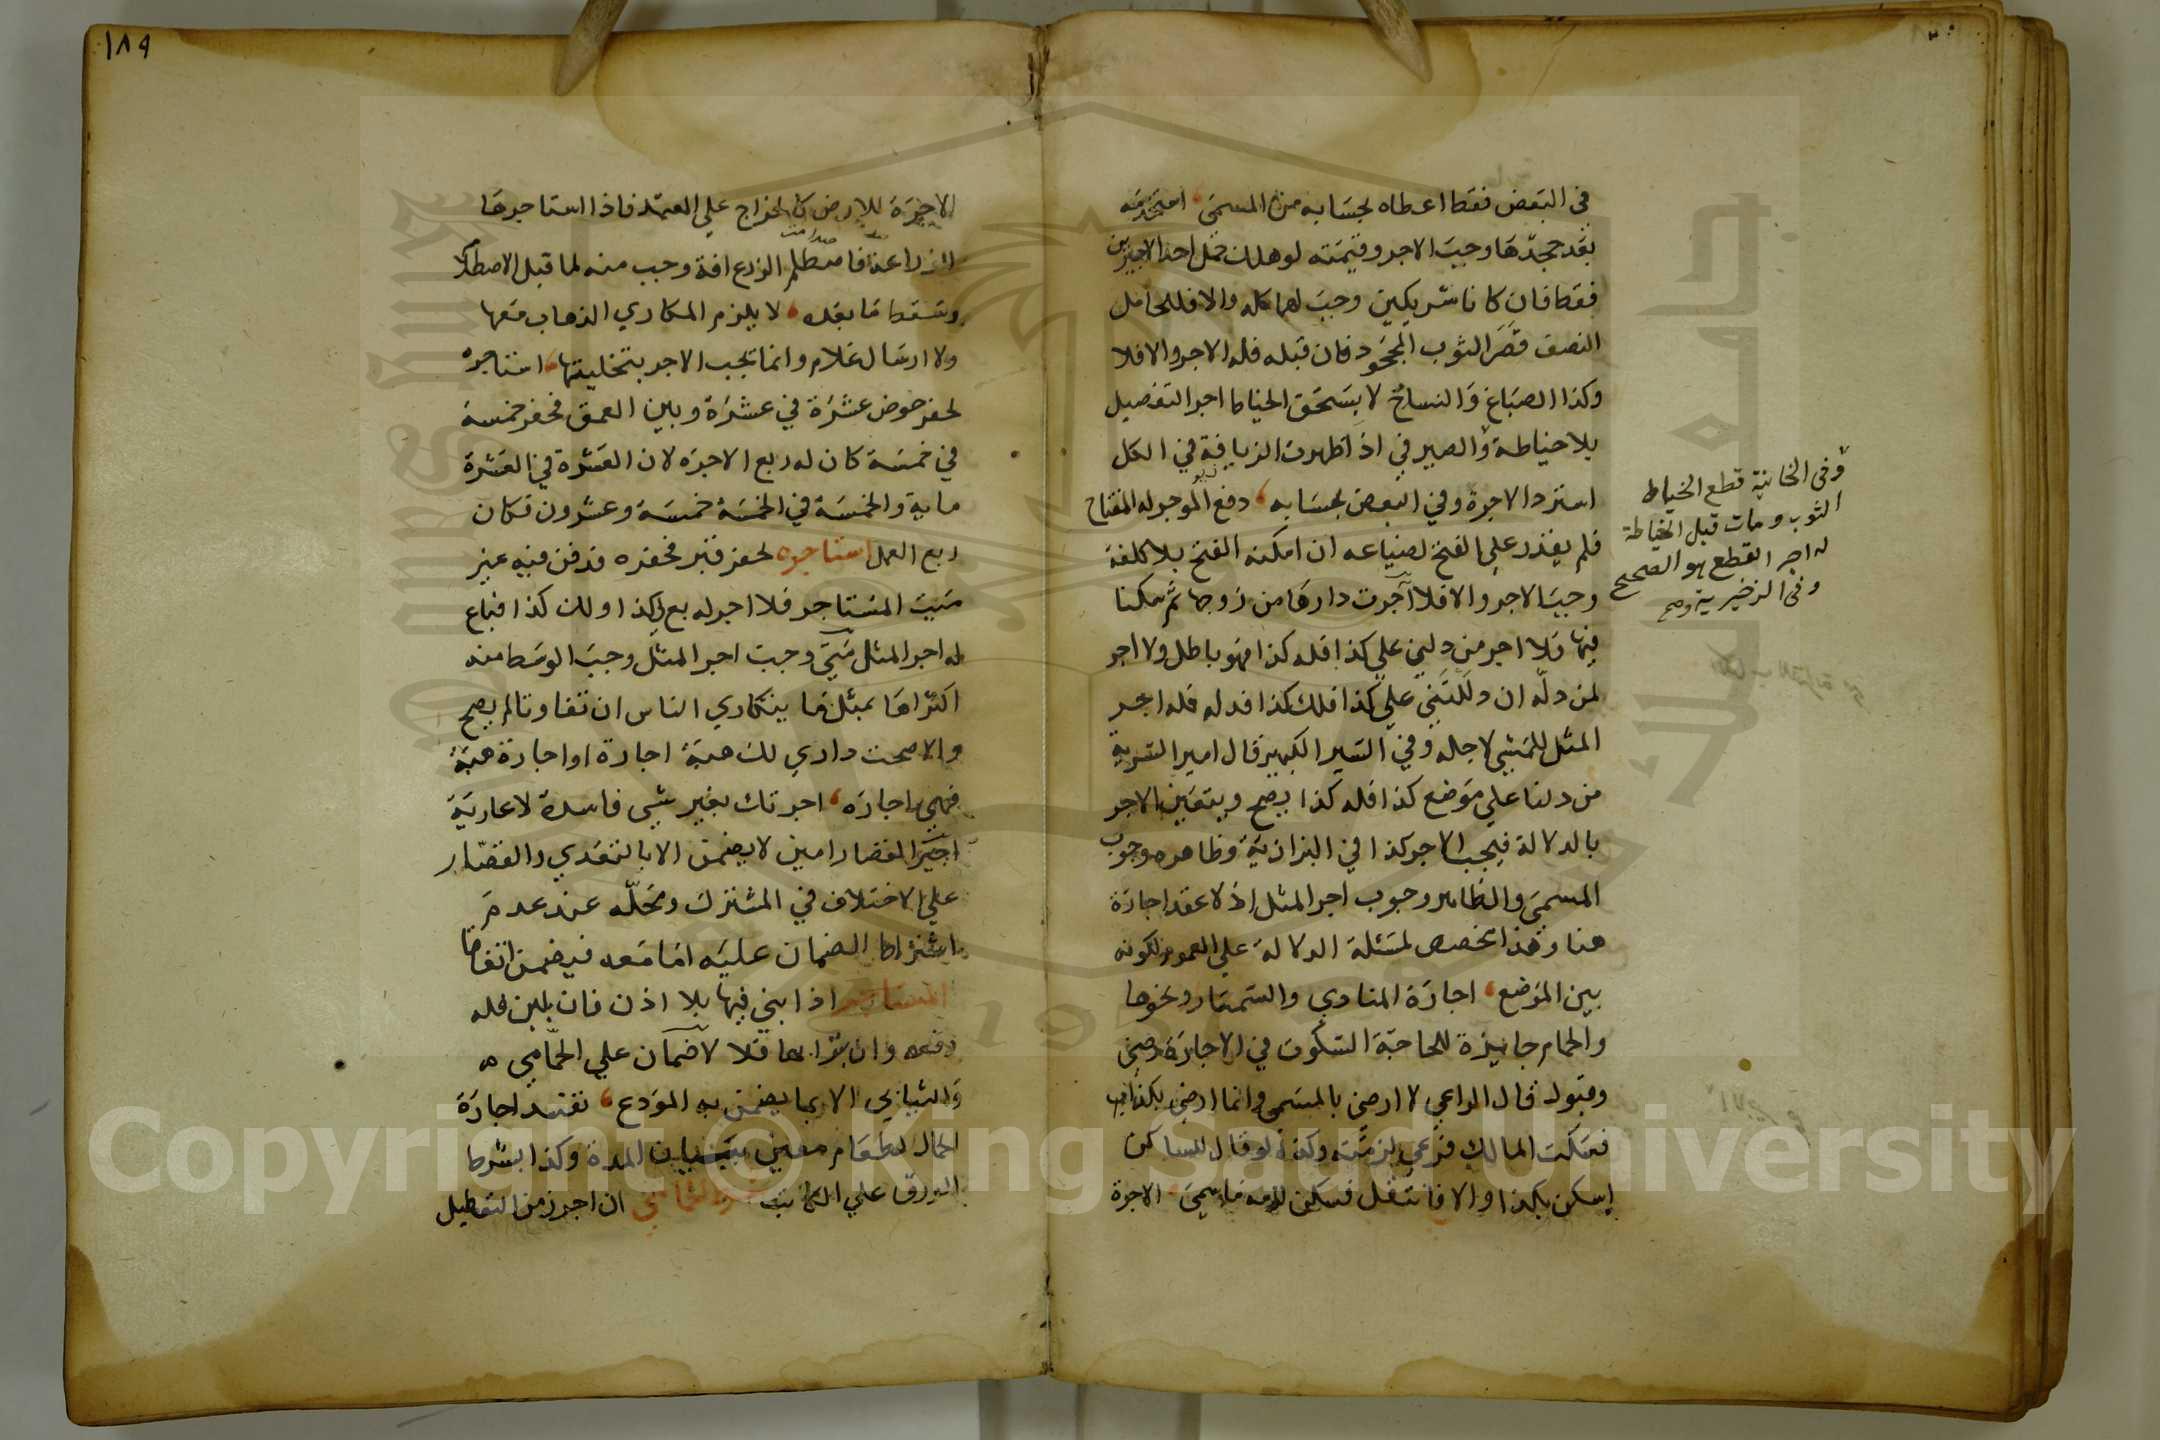 في البعض فقط اعطاه بحسابه من المسمى، استخدمه
بعد جحدها وجب الاجر وقيمته لو هلك حمل احد الاجيرين
فقط فان كانا شريكين وجب لهما كله والا فللحامل
النصف قصر الثوب المجحود فان قبله فله الاجر والا فلا
وكذا الصباغ والنساج لا يستحق الخياط اجر التفصيل
بلا خياطة والصيرفي اذا ظهرت الزيافة في الكل
استرد الاجرة وفي البعض بحسابه، دفع الموجر له المفتاح
فلم يقدر على الفتح لضياعه ان امكنه الفتح بلا كلفة
وجب الاجر والا فلا آجرت دارها من زوجها ثم سكنا
فيها فلا اجر من دلني على كذا فله كذا فهو باطل ولا اجر
لمن دله ان دللتني على كذا فلك كذا فدله فله اجر
المثل للمشي لاجله وفي السير الكبير قال امير السرية
من دلنا على موضع كذا فله كذا يصح ويتعين الاجر
بالدلالة فيجب الاجر كذا في البزازية وظاهره وجوب
المسمى والظاهر وجوب اجر المثل اذ لا عقد اجارة
هنا وهذا تخصص لمسئلة الدلالة على العموم لكونه
بين الموضع، اجارة المنادي والسمسار ونحوها
والحمام جايزة للحاجة السكوت في الاجارة رضى
وقبول قال الراعي لا ارضى بالمسمى وانما ارضى بكذا
فسكت المالك فرعى لزمته وكذا لو قال للساكن
اسكن بكذا والا فانتقل فسكن لزمه ما سمى، الاجرة
وفى الخانية قطع الخياط
الثوب ومات قبل الخياطة
له اجر القطع هو الصحيح
وفى الذخيرة
١٨٩
الاجرة للارض كالخراج على المعتمد فاذا استاجرها
للزراعة فاصطلم الزرع افة وجب منه لما قبل الاصطلام
وسقط ما بعده، لا يلزم المكاري الذهاب معها
ولا ارسال غلام وانما تجب الاجر بتخليتها، استاجره
لحفر حوض عشرة في عشرة وبين العمق فحفر خمسة
في خمسة كان له ربع الاجرة لان العشرة في العشرة
ماية والخمسة في الخمسة خمسة وعشرون فكان
ربع العمل استاجره لحفر قبر فحفره فدفن فيه غير
ميت المستاجر فلا اجر له بع لي كذا ولك كذا فباع
له اجر المثل متى وجب اجر المثل وجب الوسط منه
اكتراها بمثل ما يتكارى الناس ان تفاوتا لم يصح
والا صحت داري لك هبة اجارة او اجارة هبة
فهي اجارة، اجرتك بغير شي فاسدة لا عارية
اجير القصار امين لا يضمن الا بالتعدي والقصار
على الاختلاف في المشترك ومحله عند عدم
اشتراط الضمان عليه اما معه فيضمن اتفاقا
المستاجر اذا بنى فيها بلا اذن فان بلبن فله
رفعه وان بترابها فلا لا ضمان على الحمامي
والثيابي الا بما يضمن به المودع، تفسد اجارة
الحمال لطعام معين ببيان المدة وكذا بشرط
الورق على الكاتب ان اجرز من التعطيل